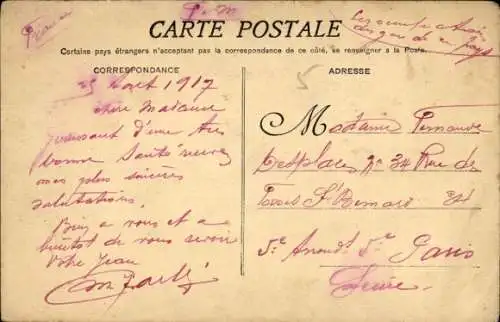 F.M
CARTE POSTALE
Certains pays étrangers n'acceptant pas la correspondance de ce côté, se renseigner à la Poste.
CORRESPONDANCE
ADRESSE
25 Août 1917
chère Madame
Jouissant d'une très
bonne Santé recevez
mes plus sincères
salutations.
Bien a vous et a
bientot de vous revoir
Votre Jean
Madame Fernande
Desplaces N° 34 Rue des
Fossés St Bernard 34
5e Arrondt 5e Paris
Seine